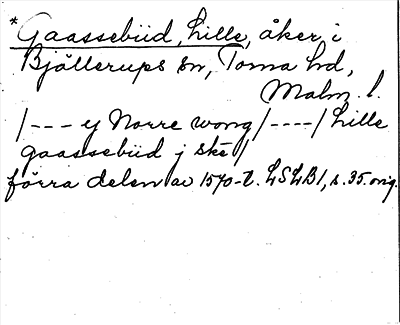 *Gaassebiid, Lille, åker, i
Bjällerups sn, Torna hd,
Malm. l.
/--- y Norre wong/----/Lille
gaassebiid j ske/
förra delen av 1570-t. LSLB1, s. 35. orig.